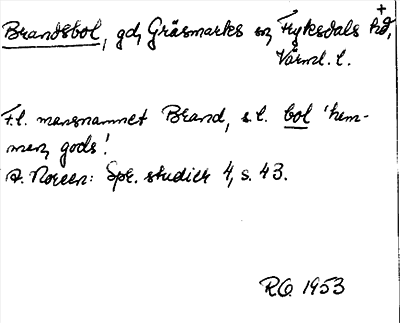 +
Brandsbol, gd, Gräsmarks sn, Fryksdals hd,
Värml. l.
F.l. mansnamnet Brand, s.l. bol 'hem-
man, gods'.
A. Noreen: Spr. studier 4, s. 43.
RG 1953